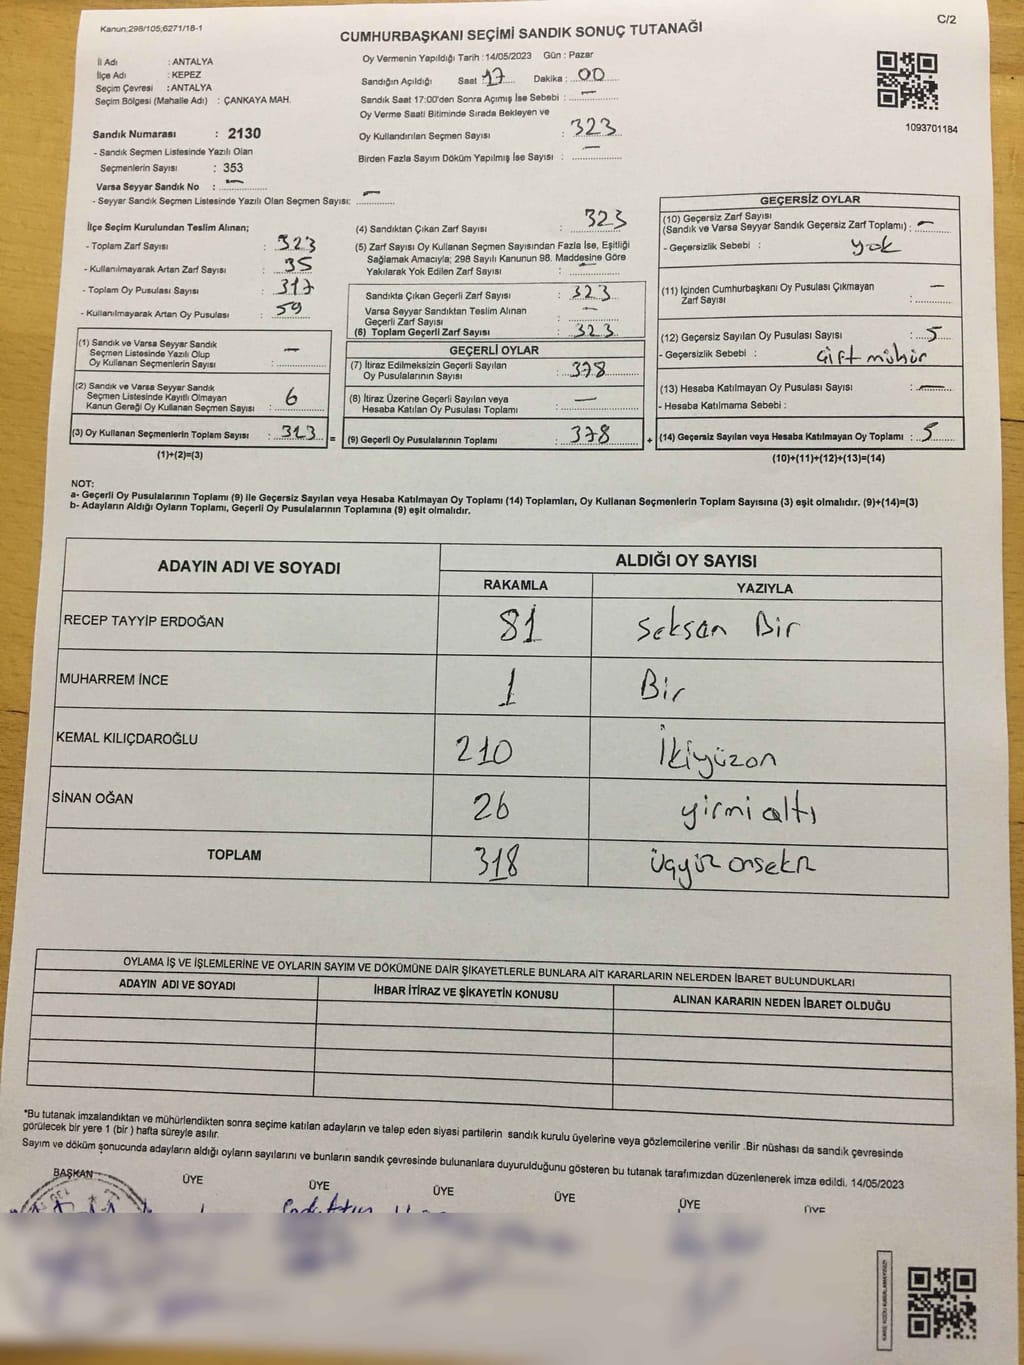 Kanun:298/105;6271/18-1
C/2
CUMHURBAŞKANI SEÇİMİ SANDIK SONUÇ TUTANAĞI
İl Adı : ANTALYA
İlçe Adı : KEPEZ
Seçim Çevresi : ANTALYA
Seçim Bölgesi (Mahalle Adı) : ÇANKAYA MAH.
Sandık Numarası : 2130
- Sandık Seçmen Listesinde Yazılı Olan
Seçmenlerin Sayısı : 353
Varsa Seyyar Sandık No : —
- Seyyar Sandık Seçmen Listesinde Yazılı Olan Seçmen Sayısı: —
Oy Vermenin Yapıldığı Tarih :14/05/2023 Gün : Pazar
Sandığın Açıldığı Saat 17 Dakika : 00
Sandık Saat 17:00'den Sonra Açımış İse Sebebi : —
Oy Verme Saati Bitiminde Sırada Bekleyen ve
Oy Kullandırılan Seçmen Sayısı : 323
Birden Fazla Sayım Döküm Yapılmış İse Sayısı : —
1093701184
İlçe Seçim Kurulundan Teslim Alınan;
- Toplam Zarf Sayısı : 323
- Kullanılmayarak Artan Zarf Sayısı : 35
- Toplam Oy Pusulası Sayısı : 317
- Kullanılmayarak Artan Oy Pusulası : 59
(1) Sandık ve Varsa Seyyar Sandık
Seçmen Listesinde Yazılı Olup
Oy Kullanan Seçmenlerin Sayısı : —
(2) Sandık ve Varsa Seyyar Sandık
Seçmen Listesinde Kayıtlı Olmayan
Kanun Gereği Oy Kullanan Seçmen Sayısı : 6
(3) Oy Kullanan Seçmenlerin Toplam Sayısı : 323 =
(1)+(2)=(3)
(4) Sandıktan Çıkan Zarf Sayısı : 323
(5) Zarf Sayısı Oy Kullanan Seçmen Sayısından Fazla İse, Eşitliği
Sağlamak Amacıyla; 298 Sayılı Kanunun 98. Maddesine Göre
Yakılarak Yok Edilen Zarf Sayısı : —
Sandıkta Çıkan Geçerli Zarf Sayısı : 323
Varsa Seyyar Sandıktan Teslim Alınan
Geçerli Zarf Sayısı : —
(6) Toplam Geçerli Zarf Sayısı : 323
GEÇERLİ OYLAR
(7) İtiraz Edilmeksizin Geçerli Sayılan
Oy Pusulalarının Sayısı : 378
(8) İtiraz Üzerine Geçerli Sayılan veya
Hesaba Katılan Oy Pusulası Toplamı : —
(9) Geçerli Oy Pusulalarının Toplamı : 378 +
GEÇERSİZ OYLAR
(10) Geçersiz Zarf Sayısı
(Sandık ve Varsa Seyyar Sandık Geçersiz Zarf Toplamı) : —
- Geçersizlik Sebebi : yok
(11) İçinden Cumhurbaşkanı Oy Pusulası Çıkmayan
Zarf Sayısı : —
(12) Geçersiz Sayılan Oy Pusulası Sayısı : 5
- Geçersizlik Sebebi : Çift mühür
(13) Hesaba Katılmayan Oy Pusulası Sayısı : —
- Hesaba Katılmama Sebebi :
(14) Geçersiz Sayılan veya Hesaba Katılmayan Oy Toplamı : 5
(10)+(11)+(12)+(13)=(14)
NOT:
a- Geçerli Oy Pusulalarının Toplamı (9) ile Geçersiz Sayılan veya Hesaba Katılmayan Oy Toplamı (14) Toplamları, Oy Kullanan Seçmenlerin Toplam Sayısına (3) eşit olmalıdır. (9)+(14)=(3)
b- Adayların Aldığı Oyların Toplamı, Geçerli Oy Pusulalarının Toplamına (9) eşit olmalıdır.
ADAYIN ADI VE SOYADI
ALDIĞI OY SAYISI
RAKAMLA YAZIYLA
RECEP TAYYİP ERDOĞAN 81 Seksan Bir
MUHARREM İNCE 1 Bir
KEMAL KILIÇDAROĞLU 210 İkiyüzon
SİNAN OĞAN 26 yirmi altı
TOPLAM 318 Üçyüz onsekiz
OYLAMA İŞ VE İŞLEMLERİNE VE OYLARIN SAYIM VE DÖKÜMÜNE DAİR ŞİKAYETLERLE BUNLARA AİT KARARLARIN NELERDEN İBARET BULUNDUKLARI
ADAYIN ADI VE SOYADI İHBAR İTİRAZ VE ŞİKAYETİN KONUSU ALINAN KARARIN NEDEN İBARET OLDUĞU
*Bu tutanak imzalandıktan ve mühürlendikten sonra seçime katılan adayların ve talep eden siyasi partilerin sandık kurulu üyelerine veya gözlemcilerine verilir .Bir nüshası da sandık çevresinde
görülecek bir yere 1 (bir ) hafta süreyle asılır.
Sayım ve döküm sonucunda adayların aldığı oyların sayılarını ve bunların sandık çevresinde bulunanlara duyurulduğunu gösteren bu tutanak tarafımızdan düzenlenerek imza edildi. 14/05/2023
BAŞKAN ÜYE ÜYE ÜYE ÜYE ÜYE ÜYE